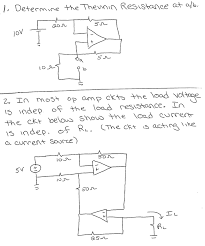 1. Determine the Thevnin Resistance at a/b.
20Ω 5Ω
10V
a
10Ω b 5Ω
2. In most op amp ckts the load voltage
is indep of the load resistance. In
the ckt below show the load current
is indep. of RL. (The ckt is acting like
a current source)
10Ω 50Ω
5V
10Ω
50Ω
IL
RL